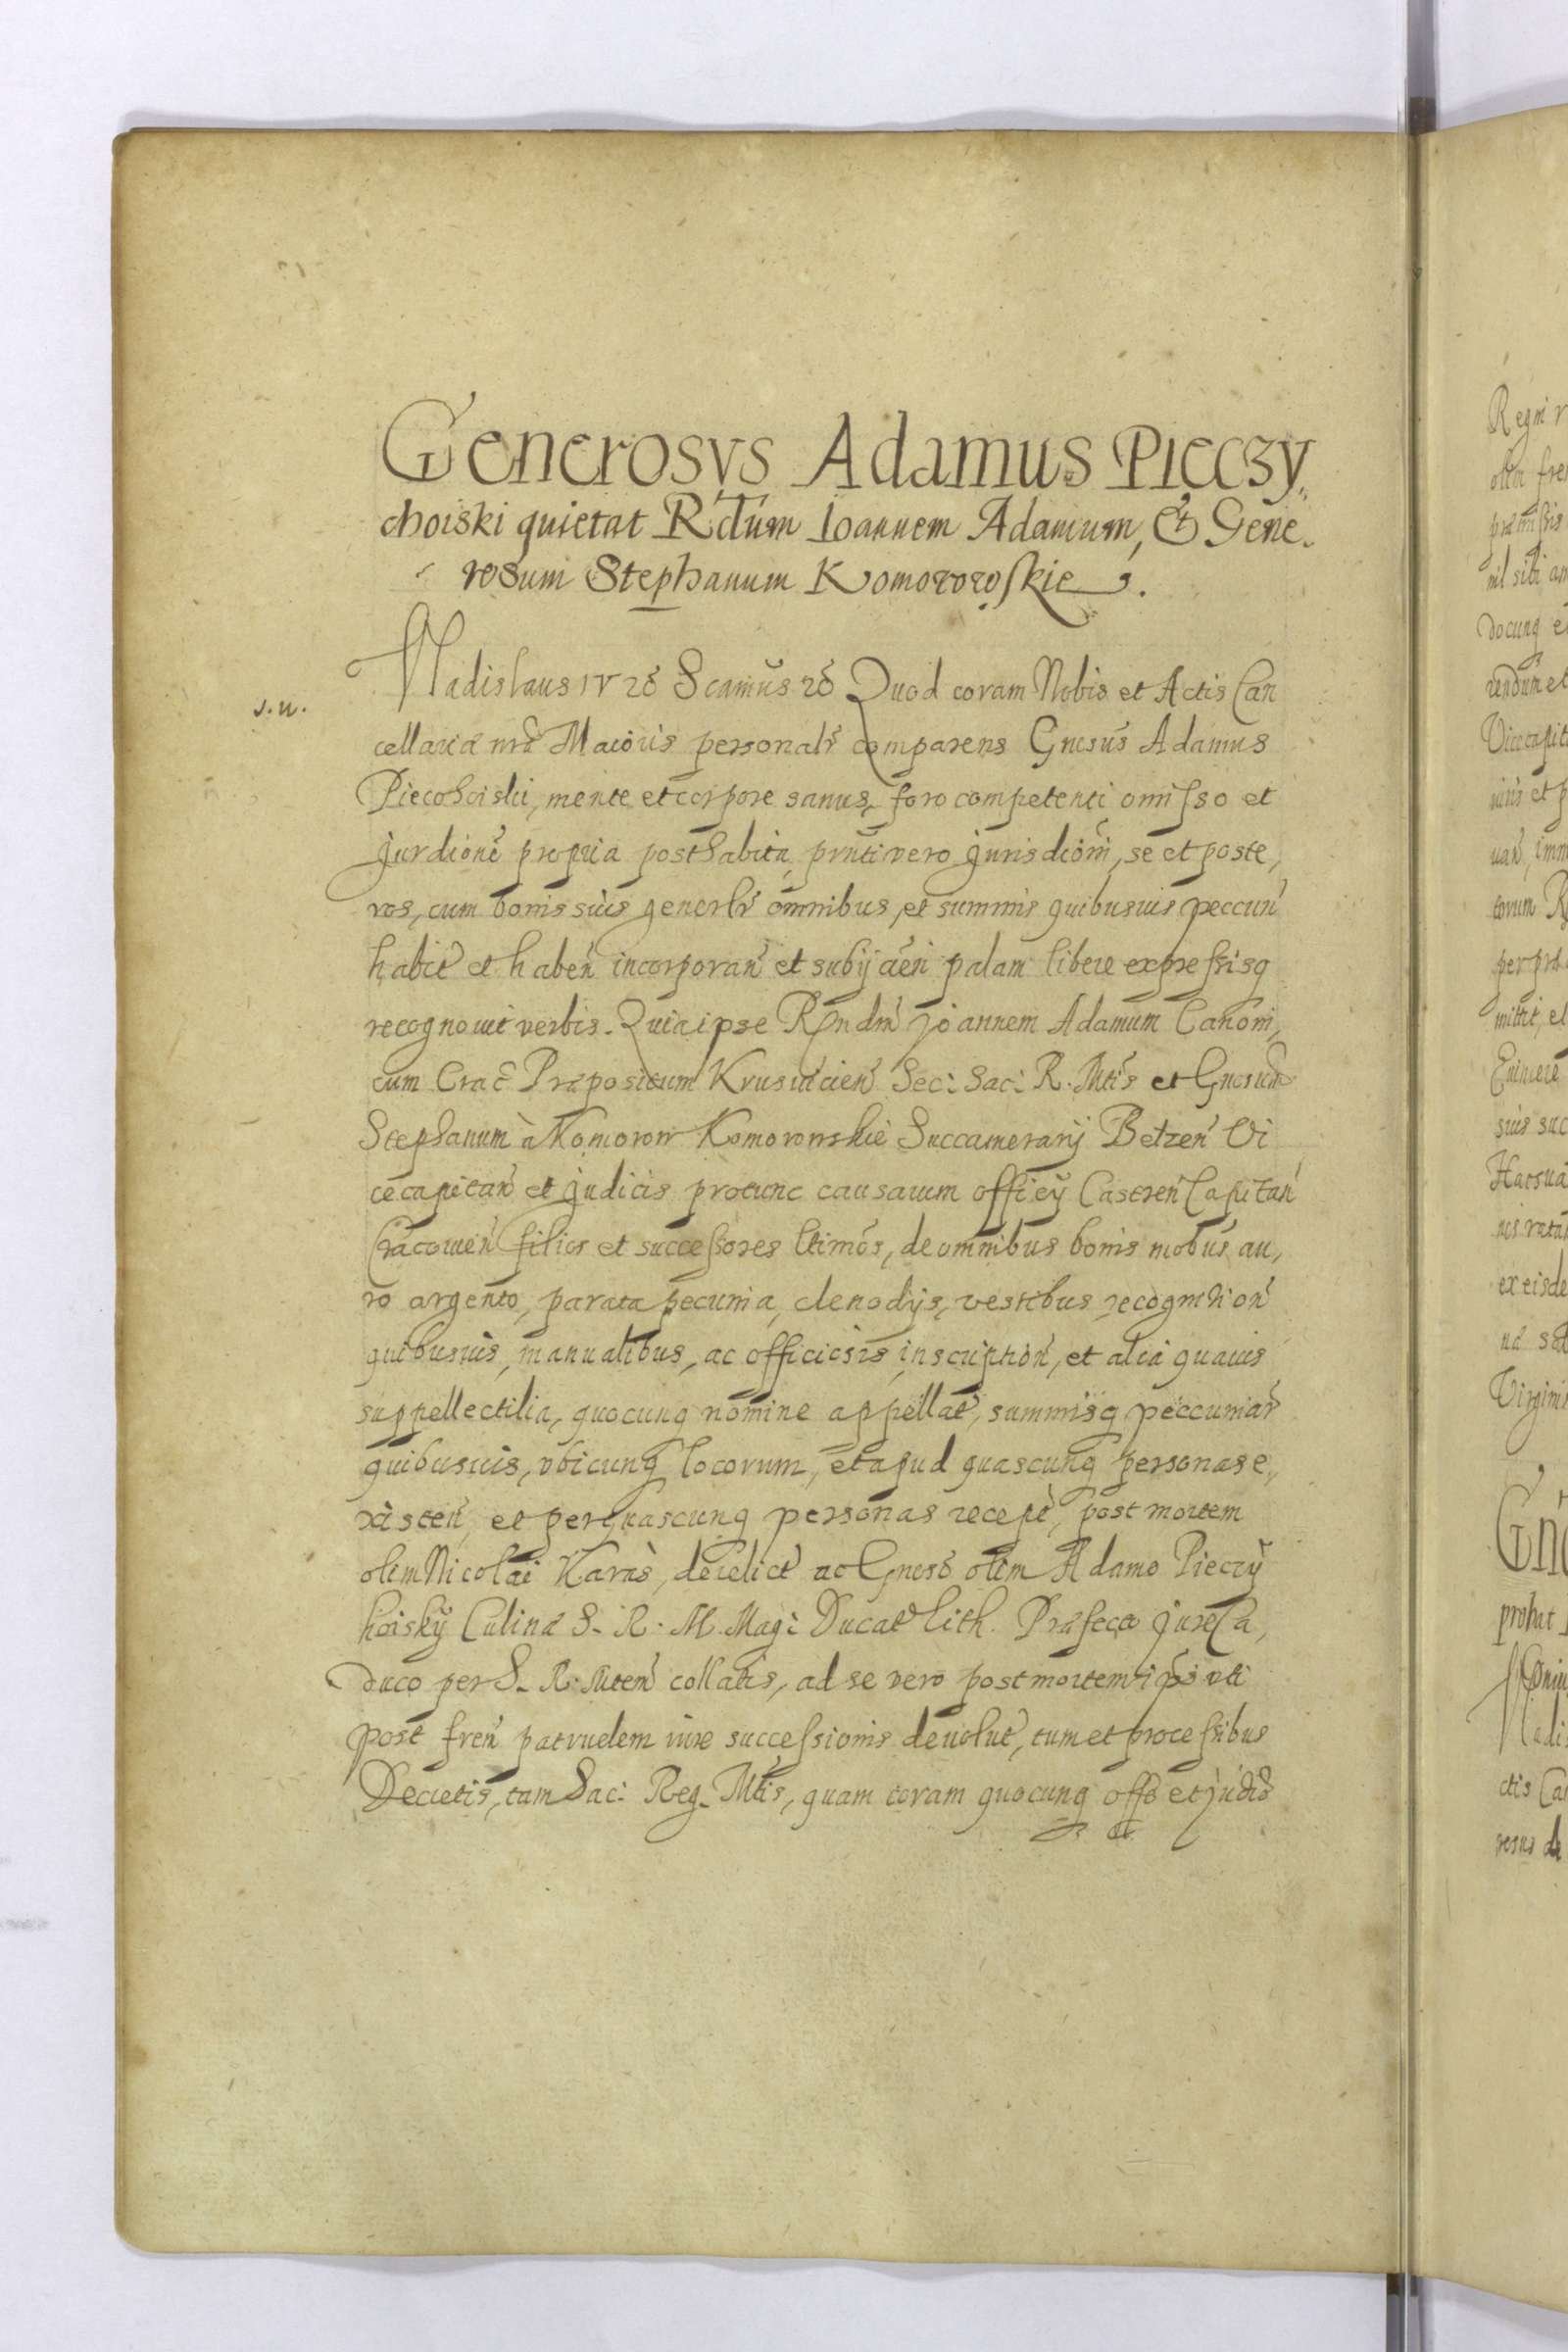 Generosus Adamus Pieczy„
choiski quietat Rdum Ioannem Adamum, & Gene„
rosum Stephanum Komorowskie.
Vladislaus IV &c Scamus &c Quod coram Nobis et Actis Can
s.n.
cellariæ nræ Maioris personalr comparens Gnosus Adamus
Piecohoiski, mente et corpore sanus, foro competenti omisso et
jurdione propria posthabita, prnti vero jurisdioni, se et poste,
ros, cum bonis suis generlr omnibus, et summis quibusuis peccun
habit et haben incorporan et subijcien palam libere expressisq
recognouit verbis. Quia ipse Rndm Joannem Adamum Canoni,
cum Crac Præpositum Krusuicien Sec: Sac: R. Mtis et Gnosum
Stephanum à Komorow Komorowskie Succamerarij Betzen Vi
cecapitan et Judicis protunc causarum officij Castren Capitan
Cracouien filios et successores ltimos, de omnibus bonis mobus, au,
ro argento, parata pecunia, clenodijs, vestibus, recognition
quibusuis, manualibus, ac officiosis, inscription, et alia quauis
suppellectilia, quocunq nomine appellat, summisq peccuniar
quibusuis, vbicunq locorum, et apud quascunq personas e,
xisten, et per quascunq personas recept, post mortem
olim Nicolai Karas, derelict ac Gnoso olim Adamo Pieczy
hoisky Culinæ S. R. M. Mag: Ducat Lith. Præfecto jure Ca,
duco per S. R. Mtem collatis, ad se vero post mortem ipsi vti
post fren patruelem iure successionis deuolut, tum et processibus
Decretis, tam Sac: Reg. Mtis, quam coram quocunq offo et judio